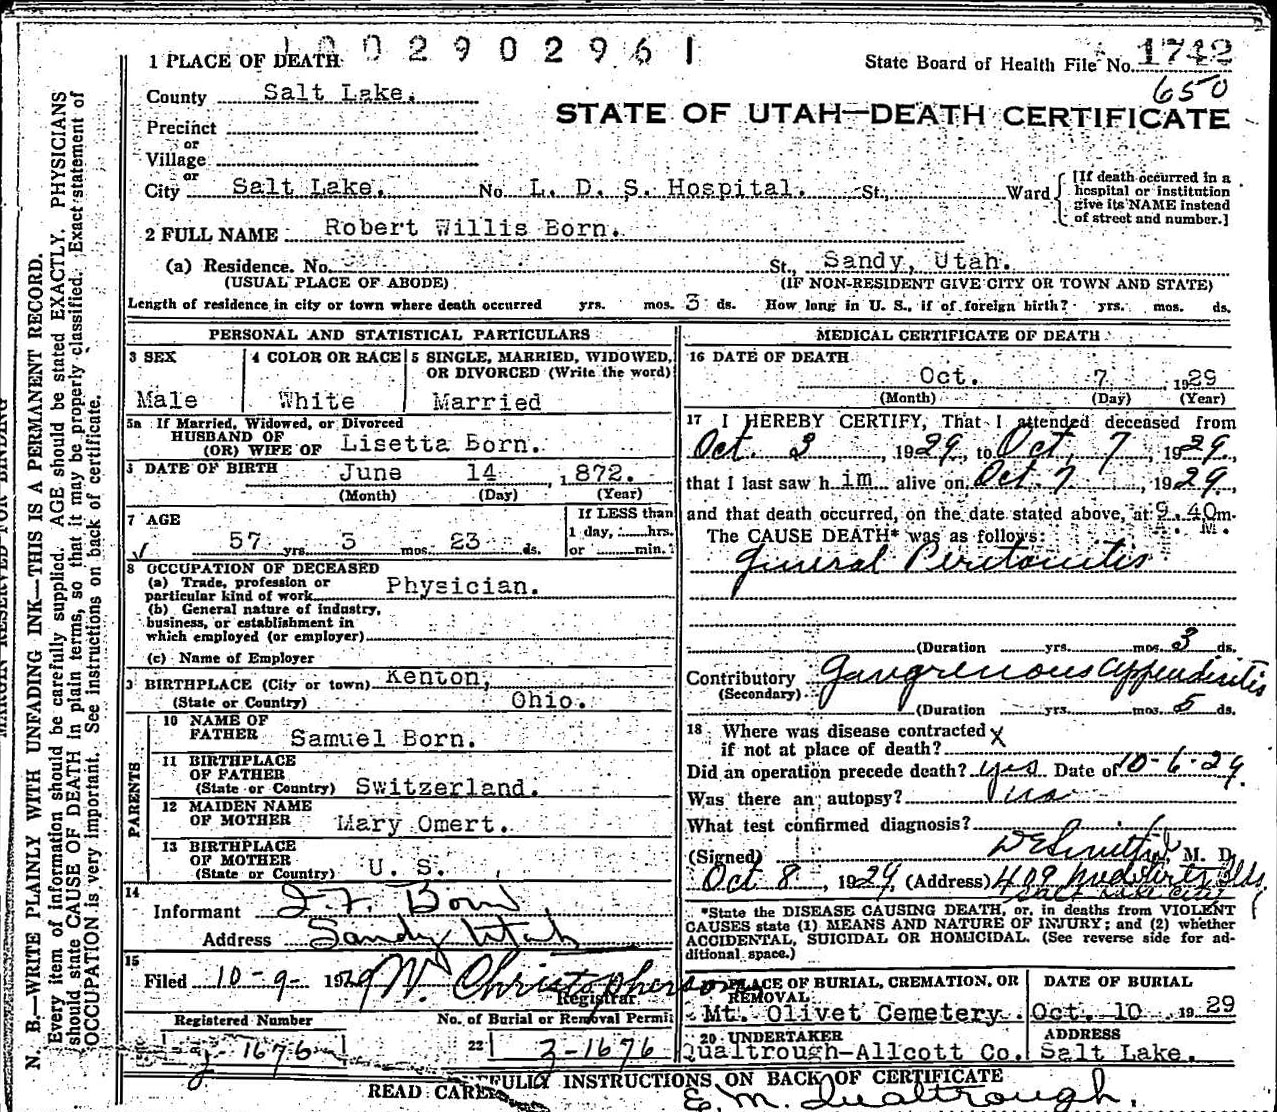 1002902961
1 PLACE OF DEATH
State Board of Health File No. 1742
650
County Salt Lake.
STATE OF UTAH—DEATH CERTIFICATE
Precinct
or
Village
or
City Salt Lake. No. L. D. S. Hospital. St., Ward
[If death occurred in a
hospital or institution
give its NAME instead
of street and number.]
2 FULL NAME Robert Willis Born.
(a) Residence. No. St., Sandy, Utah.
(USUAL PLACE OF ABODE) (IF NON-RESIDENT GIVE CITY OR TOWN AND STATE)
Length of residence in city or town where death occurred yrs. mos. 3 ds. How long in U. S., if of foreign birth? yrs. mos. ds.
PERSONAL AND STATISTICAL PARTICULARS
3 SEX 4 COLOR OR RACE 5 SINGLE, MARRIED, WIDOWED,
OR DIVORCED (Write the word)
Male White Married
5a If Married, Widowed, or Divorced
HUSBAND OF
(OR) WIFE OF Lisetta Born.
DATE OF BIRTH June 14, 1872.
(Month) (Day) (Year)
7 AGE If LESS than
1 day, hrs.
57 yrs. 3 mos. 23 ds. or min.
8 OCCUPATION OF DECEASED
(a) Trade, profession or
particular kind of work Physician.
(b) General nature of industry,
business, or establishment in
which employed (or employer)
(c) Name of Employer
BIRTHPLACE (City or town) Kenton,
(State or Country) Ohio.
PARENTS
10 NAME OF
FATHER Samuel Born.
11 BIRTHPLACE
OF FATHER
(State or Country) Switzerland.
12 MAIDEN NAME
OF MOTHER Mary Omert.
13 BIRTHPLACE
OF MOTHER
(State or Country) U. S.
14
Informant Born
Address Sandy Utah
15
Filed 10-9 1929 W. Christopherson
Registrar
Registered Number No. of Burial or Removal Permit
1676 22 3-1676
MEDICAL CERTIFICATE OF DEATH
16 DATE OF DEATH
Oct. 7, 1929
(Month) (Day) (Year)
17 I HEREBY CERTIFY, That I attended deceased from
Oct. 3, 1929, to Oct. 7, 1929,
that I last saw him alive on Oct. 7, 1929,
and that death occurred, on the date stated above, at 9.40m.
The CAUSE DEATH* was as follows:
General Peritonitis
(Duration yrs. mos. 3 ds.
Contributory Gangrenous appendicitis
(Secondary)
(Duration yrs. mos. 5 ds.
18 Where was disease contracted
if not at place of death? X
Did an operation precede death? yes Date of 10-6-29.
Was there an autopsy? no
What test confirmed diagnosis?
(Signed) M. D.
Oct 8, 1929, (Address) 409
Salt Lake City
*State the DISEASE CAUSING DEATH, or, in deaths from VIOLENT
CAUSES state (1) MEANS AND NATURE OF INJURY; and (2) whether
ACCIDENTAL, SUICIDAL OR HOMICIDAL. (See reverse side for ad-
ditional space.)
PLACE OF BURIAL, CREMATION, OR
REMOVAL DATE OF BURIAL
Mt. Olivet Cemetery. Oct. 10 1929
20 UNDERTAKER ADDRESS
Qualtrough-Allcott Co. Salt Lake.
READ CAREFULLY INSTRUCTIONS ON BACK OF CERTIFICATE
E. M. Qualtrough.
MARGIN RESERVED FOR BINDING
N. B.—WRITE PLAINLY WITH UNFADING INK—THIS IS A PERMANENT RECORD.
Every item of information should be carefully supplied. AGE should be stated EXACTLY. PHYSICIANS
should state CAUSE OF DEATH in plain terms, so that it may be properly classified. Exact statement of
OCCUPATION is very important. See instructions on back of certificate.